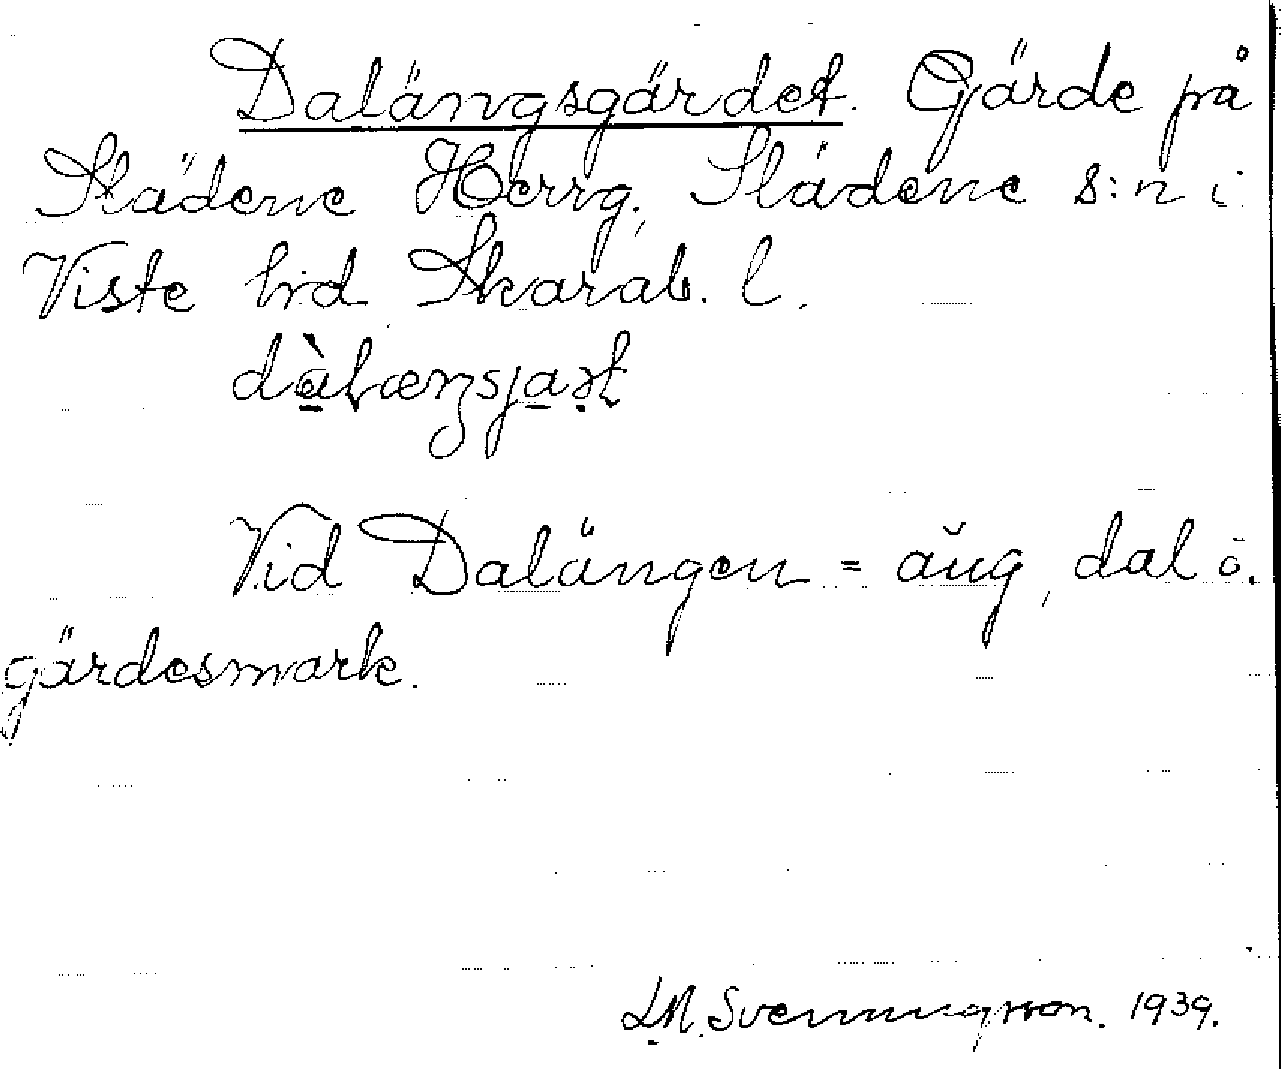 Dalängsgärdet. Gärde på
Slädene Herrg., Slädene s:n i
Viste hrd Skarab. l.
Vid Dalängen = äng, dal o.
gärdesmark.
L.M. Svenningsson. 1939.